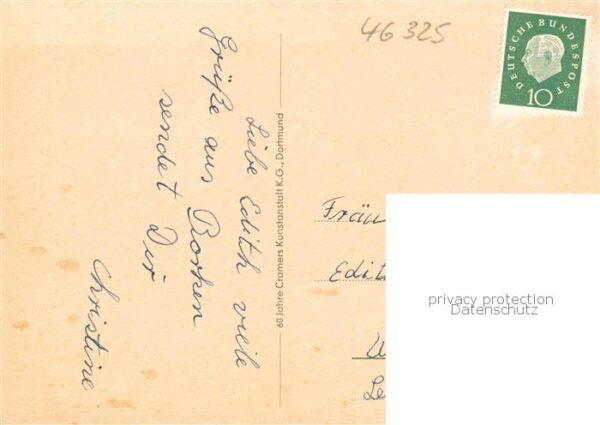 46325
DEUTSCHE BUNDESPOST
10
Liebe Edith viele
Grüße aus Borken
sendet Dir
Christine
60 Jahre Cramers Kunstanstalt K.G., Dortmund
Fräu
Edit
privacy protection
Datenschutz